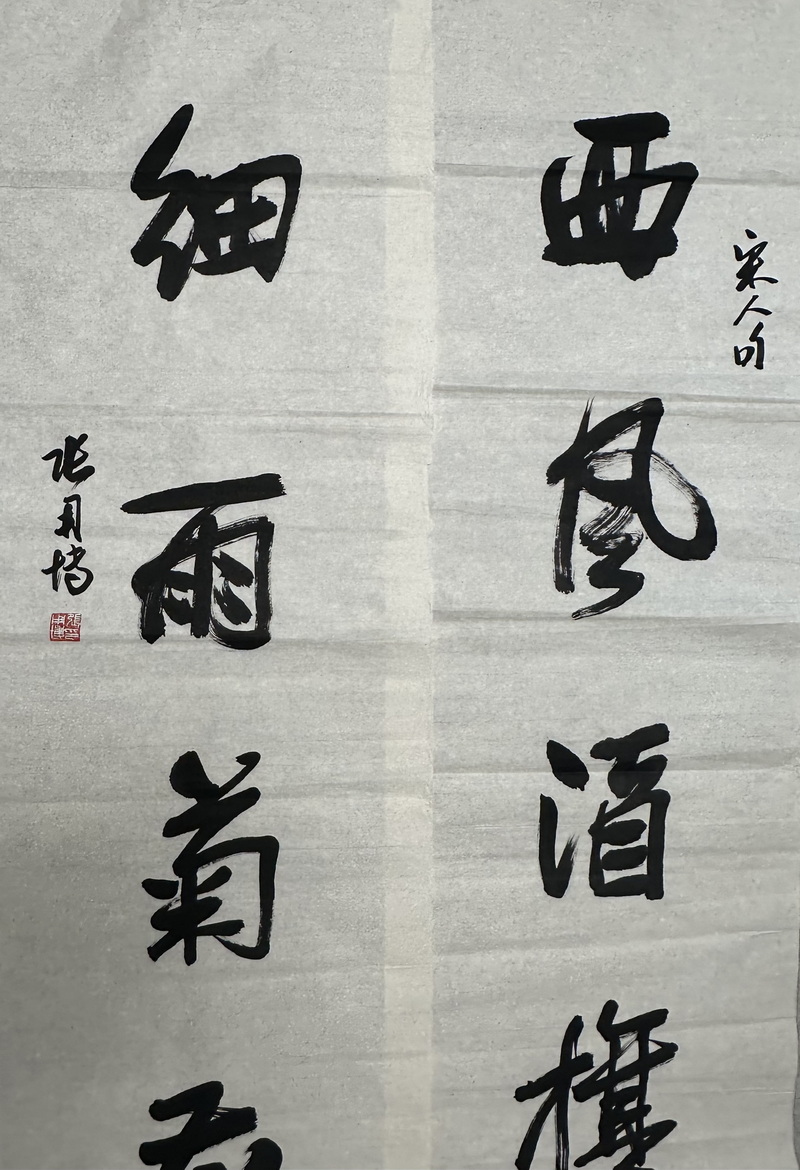 宋人句
西風酒旗
細雨菊花
张博